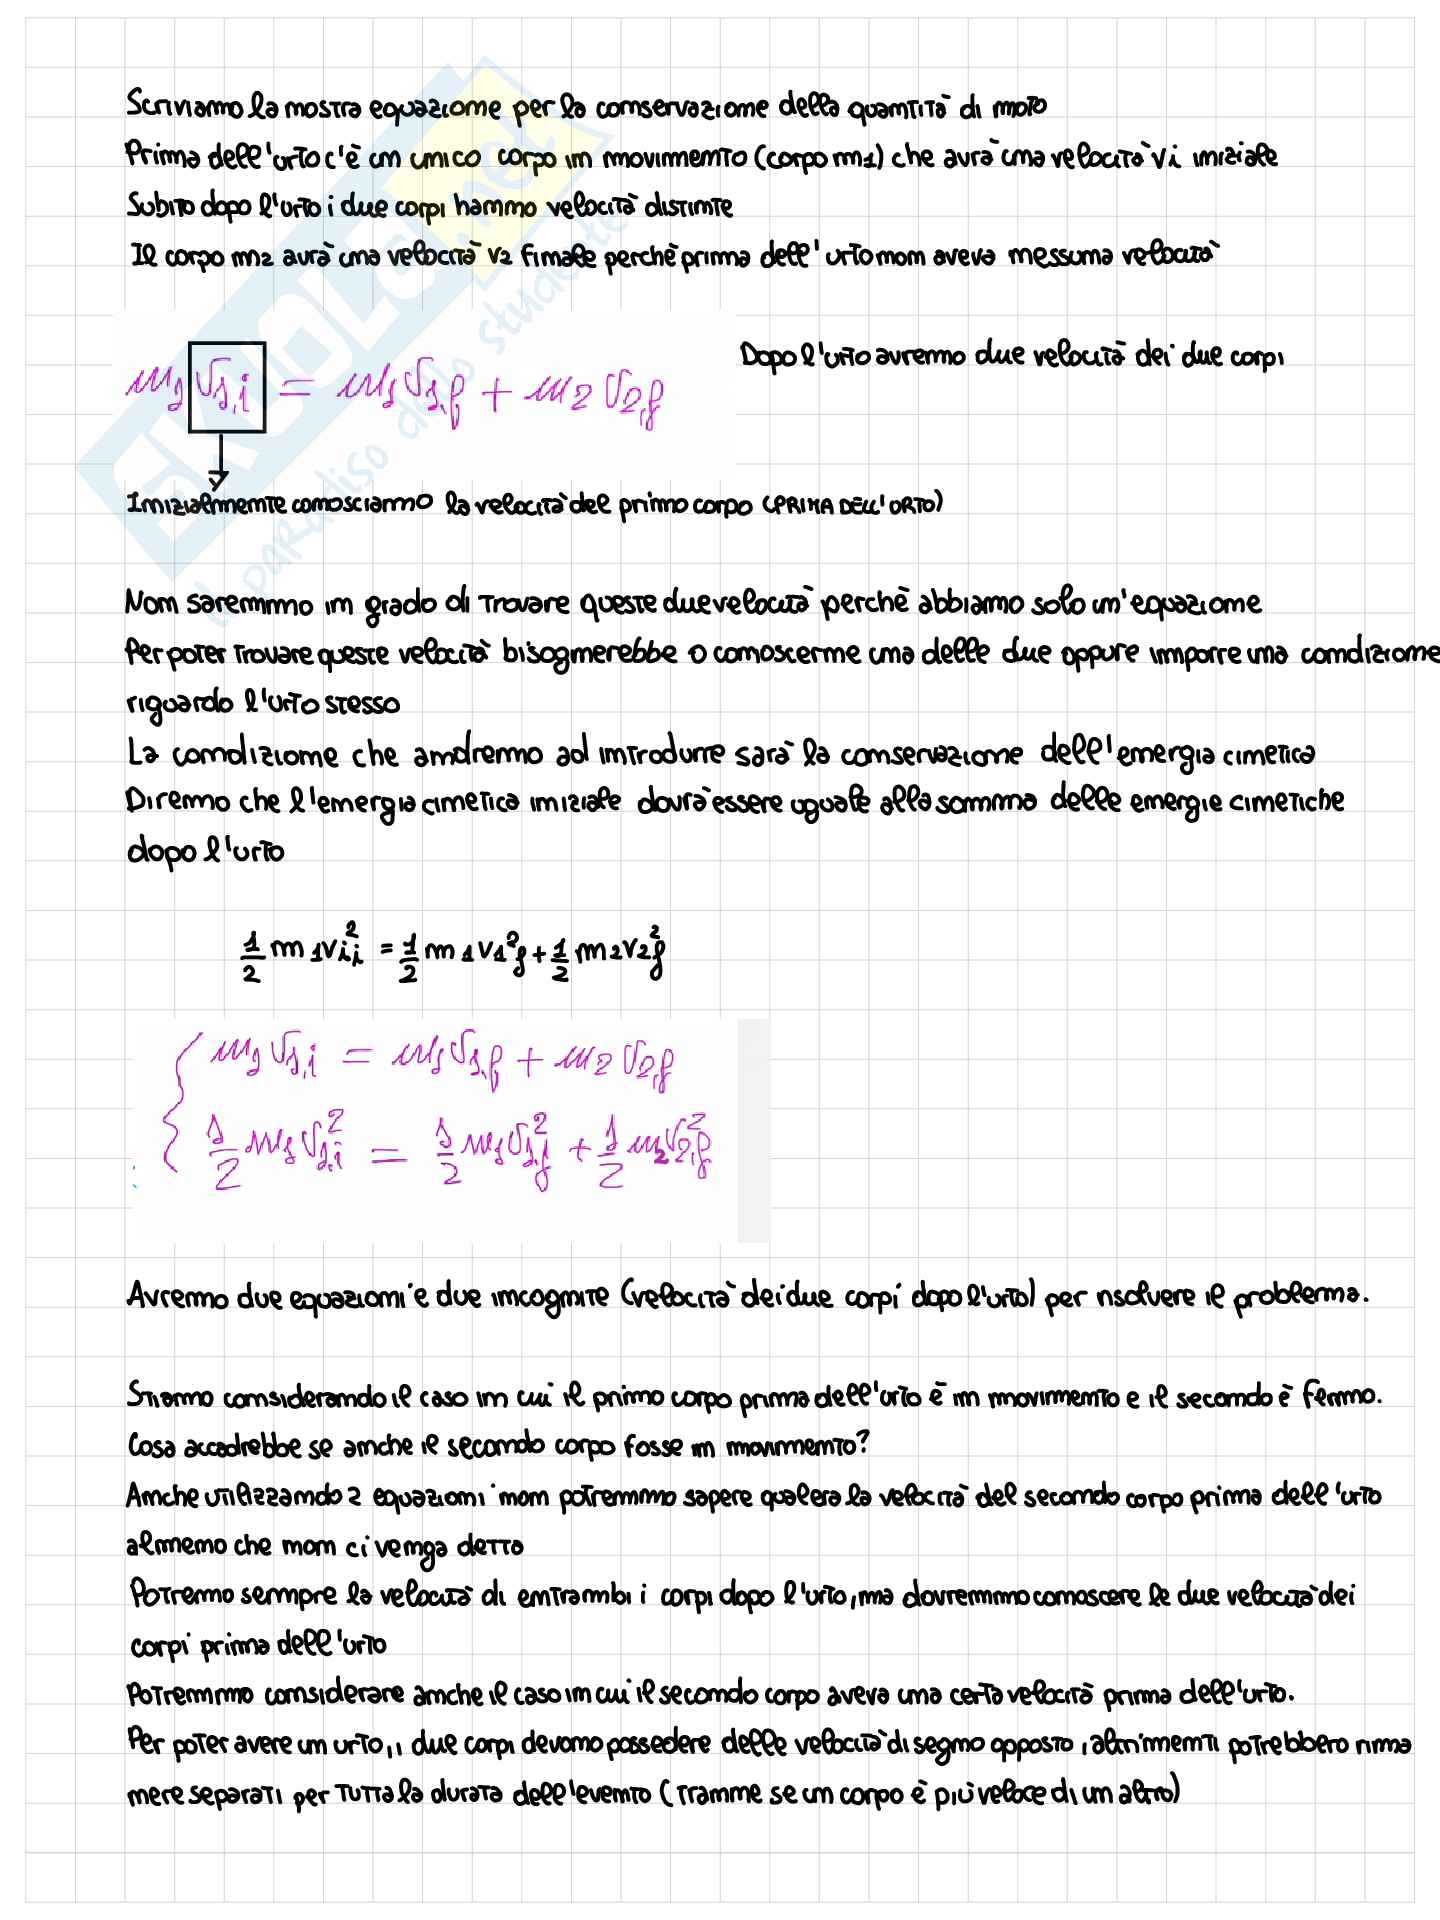 Scriviamo la nostra equazione per la conservazione della quantità di moto
Prima dell'urto c'è un unico corpo in movimento (corpo m1) che avrà una velocità vi iniziale
Subito dopo l'urto i due corpi hanno velocità distinte
Il corpo m2 avrà una velocità v2 finale perchè prima dell'urto non aveva nessuna velocità
m1 v1,i = m1 v1,f + m2 v2,f
Dopo l'urto avremo due velocità dei due corpi
Inizialmente conosciamo la velocità del primo corpo (PRIMA DELL'URTO)
Non saremmo in grado di trovare queste due velocità perchè abbiamo solo un'equazione
Per poter trovare queste velocità bisognerebbe o conoscerne una delle due oppure imporre una condizione
riguardo l'urto stesso
La condizione che andremo ad introdurre sarà la conservazione dell'energia cinetica
Diremo che l'energia cinetica iniziale dovrà essere uguale alla somma delle energie cinetiche
dopo l'urto
1/2 m1vii² = 1/2 m1v1²f + 1/2 m2v2²f
m1 v1,i = m1 v1,f + m2 v2,f
1/2 m1 v1,i² = 1/2 m1 v1,f² + 1/2 m2 v2,f²
Avremo due equazioni e due incognite (velocità dei due corpi dopo l'urto) per risolvere il problema.
Stiamo considerando il caso in cui il primo corpo prima dell'urto è in movimento e il secondo è fermo.
Cosa accadrebbe se anche il secondo corpo fosse in movimento?
Anche utilizzando 2 equazioni non potremmo sapere qual era la velocità del secondo corpo prima dell'urto
almeno che non ci venga detto
Potremo sempre la velocità di entrambi i corpi dopo l'urto, ma dovremmo conoscere le due velocità dei
corpi prima dell'urto
Potremmo considerare anche il caso in cui il secondo corpo aveva una certa velocità prima dell'urto.
Per poter avere un urto, i due corpi devono possedere delle velocità di segno opposto, altrimenti potrebbero rima
nere separati per tutta la durata dell'evento (tranne se un corpo è più veloce di un altro)
SKUOLA.net
il paradiso dello studente